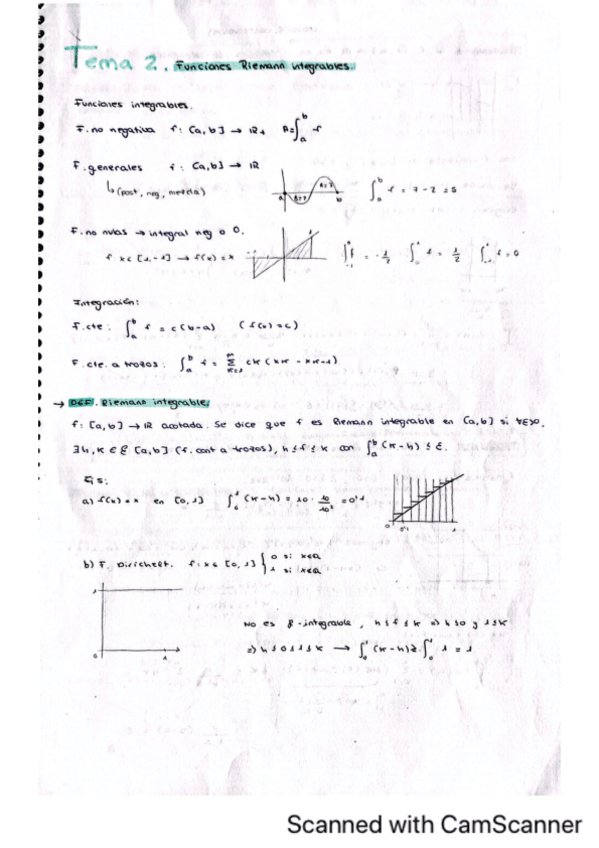 Tema 2. Funciones Riemann integrables.
Funciones integrables.
F. no negativa f: [a, b] → IR+ A=∫_a^b f
F. generales f: [a, b] → IR
↳ (posit, neg, mezcla)
∫_a^b f = 7 - 2 = 5
F. no nulas → integral neg o 0.
f: x ∈ [1, -1] → f(x) = x
= -1/2 ∫_0^1 f = 1/2 f = 0
Integración:
F. cte: ∫_a^b f = c(b-a) (f(x) = c)
F. cte. a trozos: ∫_a^b f = Σ ck (xk - xk-1)
→ DEF. Riemann integrable.
f: [a, b] → IR acotada. Se dice que f es Riemann integrable en [a, b] si ∀ε>0.
∃ h, k ∈ [a, b] (f. cont a trozos), h ≤ f ≤ k con ∫_a^b (k-h) ≤ ε.
Ejs:
a) f(x) = x en [0, 1] (k-h) = 10 · = 0'1
b) F. Dirichlet. f: x ∈ [0, 1] { 0 si x∈Q
1 si x∉Q
1
0 1
No es R-integrable, h ≤ f ≤ k ⇒ h ≤ 0 y 1 ≤ k
⇒ h ≤ 0 1 ≤ k → ∫_0^1 (k-h) ≥ ∫_0^1 1 = 1
Scanned with CamScanner